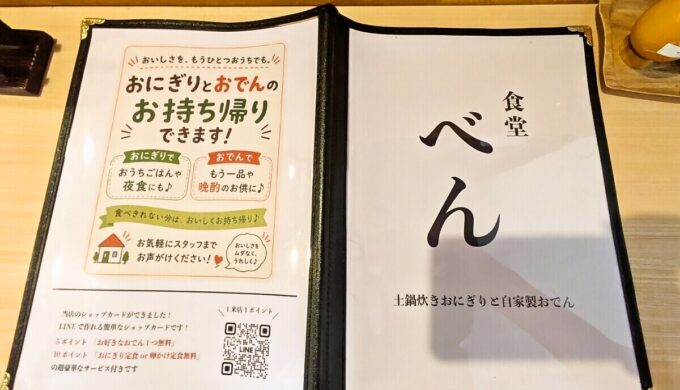 おいしさを、もうひとつおうちでも。
おにぎりとおでんの
お持ち帰り
できます!
おにぎりで
おうちごはんや
夜食にも♪
おでんで
もう一品や
晩酌のお供に♪
食べきれない分は、おいしくお持ち帰り♪
お気軽にスタッフまで
お声がけください!
おいしさを
ムダなく、
うれしく♪
当店のショップカードができました!
LINEで作れる簡単なショップカードです!
5ポイント 「お好きなおでん1つ無料」
10ポイント 「おにぎり定食 or 卵かけ定食無料」
の超豪華なサービス付きです
1来店1ポイント
LINE
食堂
べん
土鍋炊きおにぎりと自家製おでん